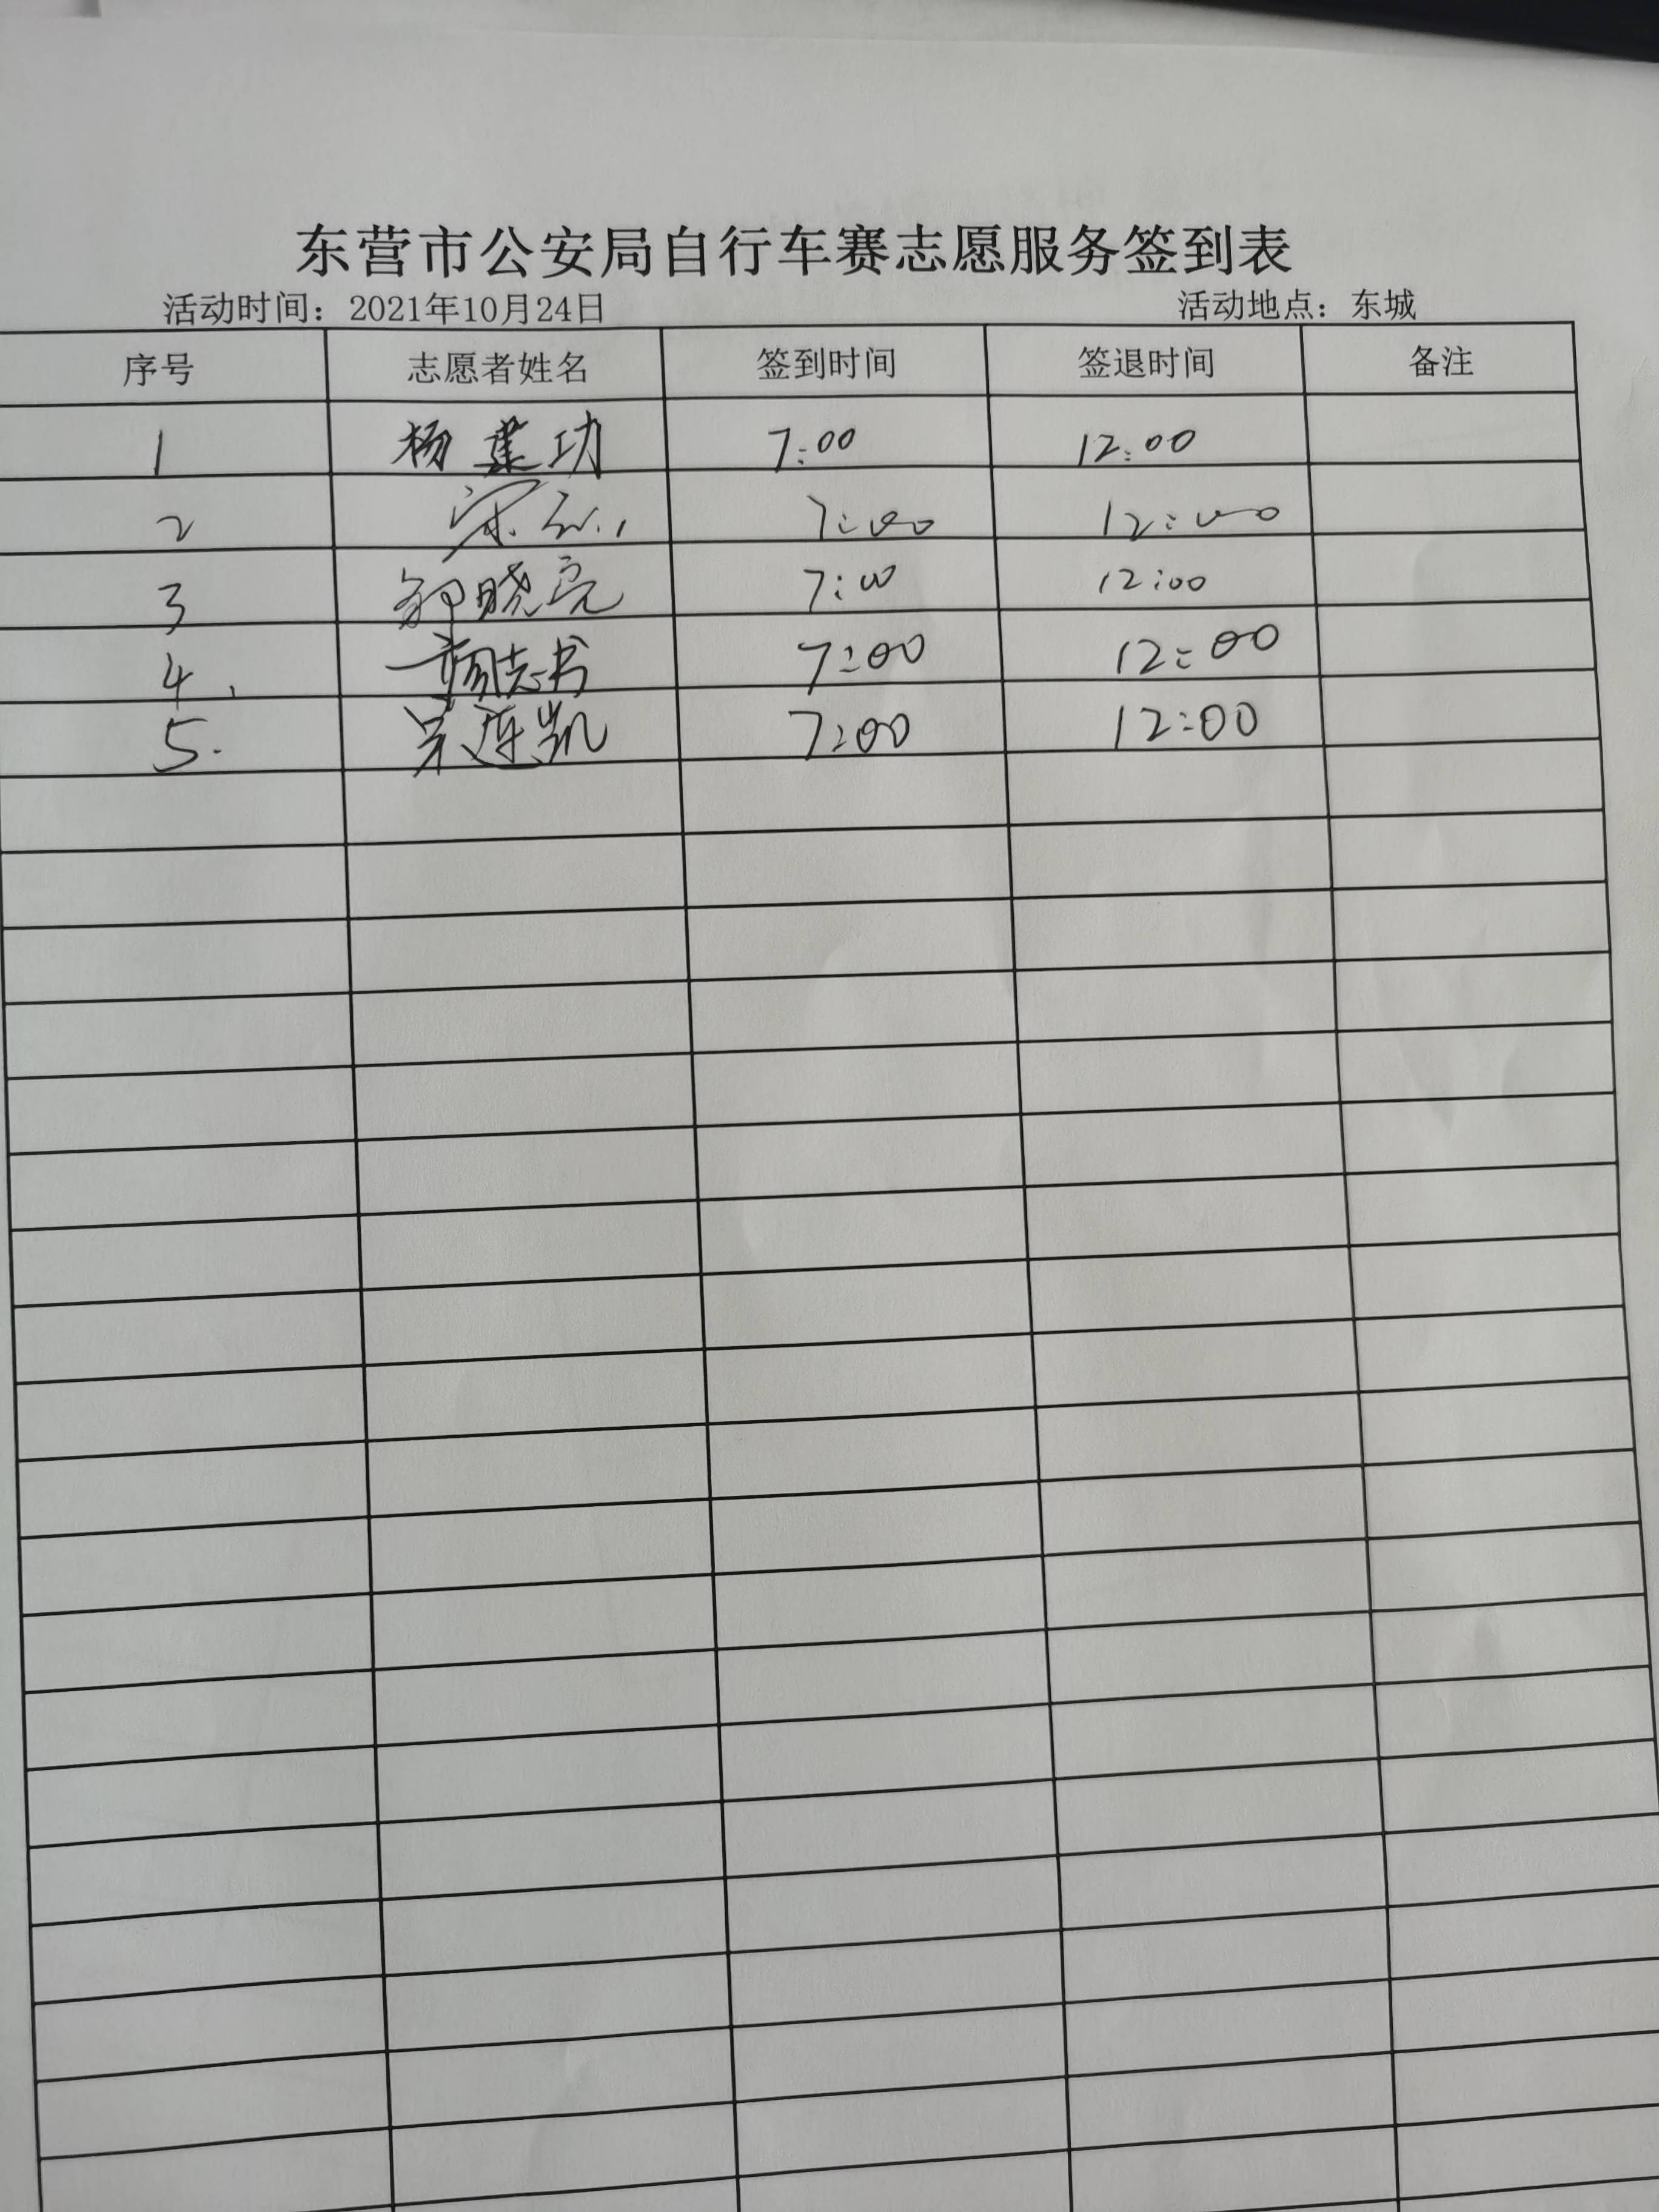 东营市公安局自行车赛志愿服务签到表
活动时间：2021年10月24日 活动地点：东城
序号 志愿者姓名 签到时间 签退时间 备注
1 杨建功 7:00 12:00
2 宋 7:00 12:00
3 晓亮 7:00 12:00
4. 志书 7:00 12:00
5. 吴连凯 7:00 12:00